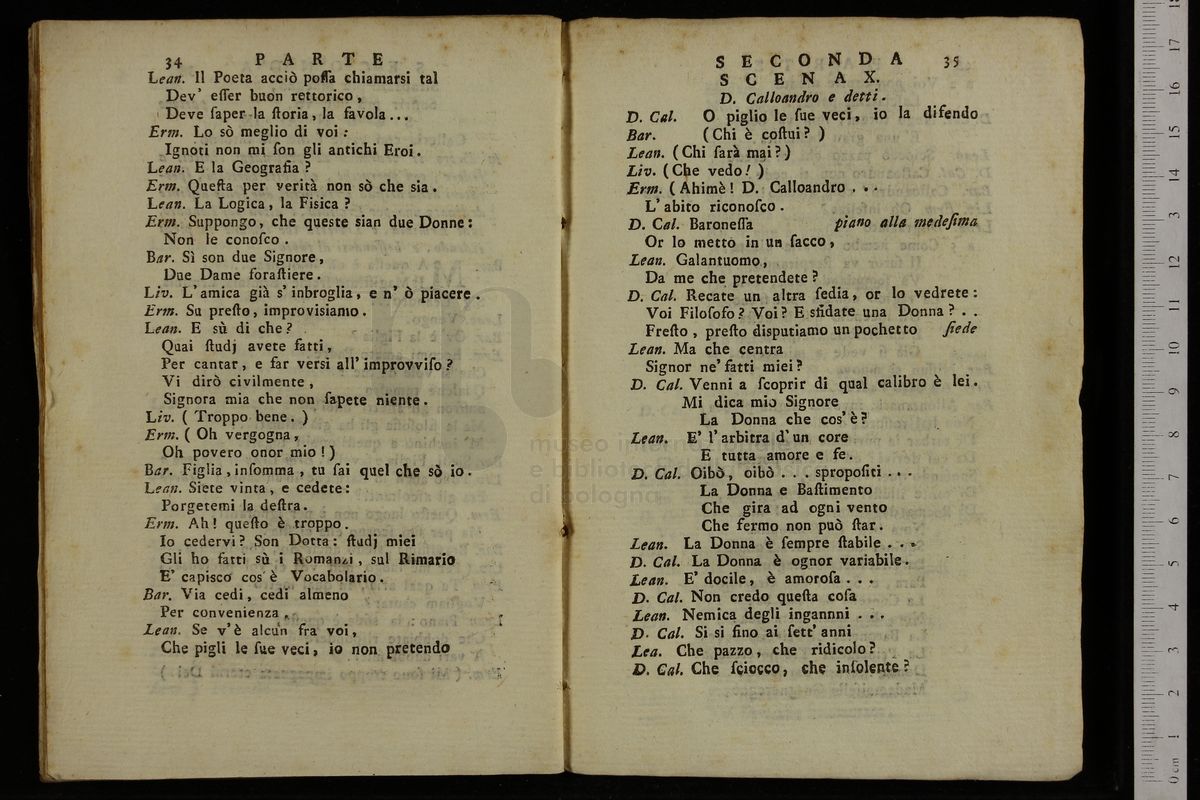 34 PARTE
Lean. Il Poeta acciò poſſa chiamarsi tal
Dev' eſſer buon rettorico,
Deve ſaper la ſtoria, la favola...
Erm. Lo sò meglio di voi:
Ignoti non mi ſon gli antichi Eroi.
Lean. E la Geografia?
Erm. Queſta per verità non sò che sia.
Lean. La Logica, la Fisica?
Erm. Suppongo, che queste sian due Donne:
Non le conoſco.
Bar. Sì son due Signore,
Due Dame foraſtiere.
Liv. L'amica già s'inbroglia, e n'ò piacere.
Erm. Su preſto, improvisiamo.
Lean. E sù di che?
Quai ſtudj avete fatti,
Per cantar, e far versi all'improvviſo?
Vi dirò civilmente,
Signora mia che non ſapete niente.
Liv. (Troppo bene.)
Erm. (Oh vergogna,
Oh povero onor mio!)
Bar. Figlia, inſomma, tu ſai quel che sò io.
Lean. Siete vinta, e cedete:
Porgetemi la deſtra.
Erm. Ah! queſto è troppo.
Io cedervi? Son Dotta: ſtudj miei
Gli ho fatti sù i Romanzi, sul Rimario
E' capisco cos'è Vocabolario.
Bar. Via cedi, cedi almeno
Per convenienza.
Lean. Se v'è alcun fra voi,
Che pigli le ſue veci, io non pretendo
SECONDA 35
SCENA X.
D. Calloandro e detti.
D. Cal. O piglio le ſue veci, io la difendo
Bar. (Chi è coſtui?)
Lean. (Chi ſarà mai?)
Liv. (Che vedo!)
Erm. (Ahimè! D. Calloandro...
L'abito riconoſco.
D. Cal. Baroneſſa piano alla medeſima
Or lo metto in un ſacco,
Lean. Galantuomo,
Da me che pretendete?
D. Cal. Recate un altra ſedia, or lo vedrete:
Voi Filoſofo? Voi? E sfidate una Donna?..
Freſto, preſto disputiamo un pochetto ſiede
Lean. Ma che centra
Signor ne'fatti miei?
D. Cal. Venni a ſcoprir di qual calibro è lei.
Mi dica mio Signore
La Donna che cos'è?
Lean. E' l'arbitra d'un core
E tutta amore e fe.
D. Cal. Oibò, oibò... spropoſiti...
La Donna e Baſtimento
Che gira ad ogni vento
Che fermo non può ſtar.
Lean. La Donna è ſempre ſtabile...
D. Cal. La Donna è ognor variabile.
Lean. E' docile, è amoroſa...
D. Cal. Non credo queſta coſa
Lean. Nemica degli ingannni...
D. Cal. Si si fino ai ſett'anni
Lea. Che pazzo, che ridicolo?
D. Cal. Che ſciocco, che inſolente?